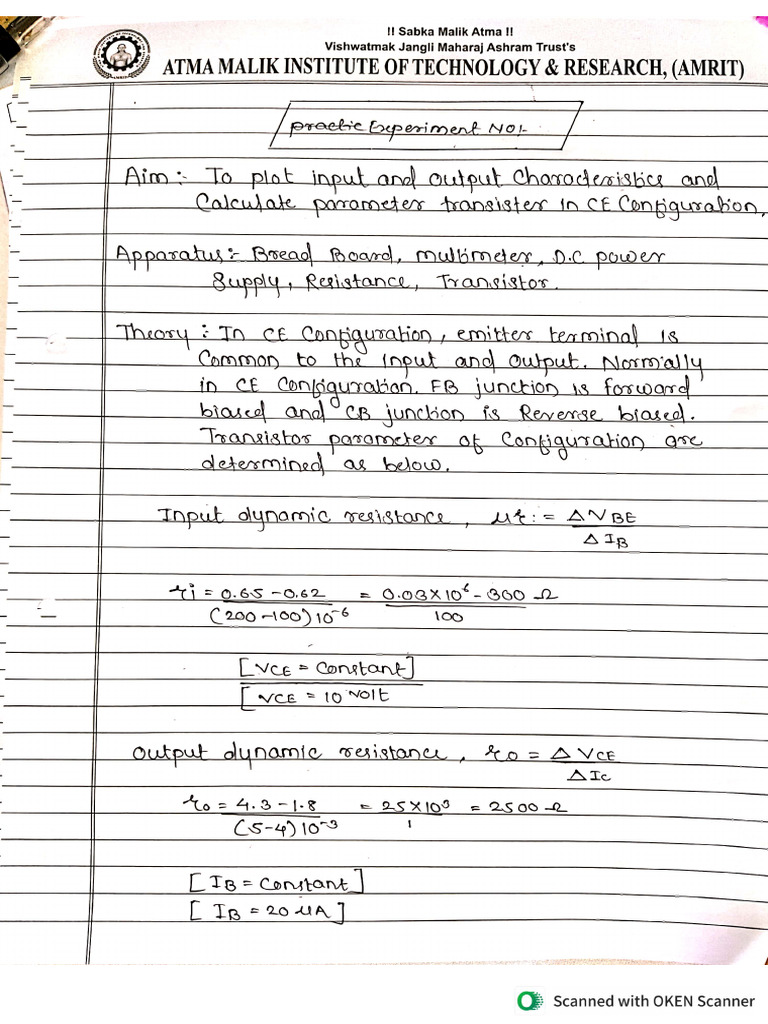 !! Sabka Malik Atma !!
Vishwatmak Jangli Maharaj Ashram Trust's
ATMA MALIK INSTITUTE OF TECHNOLOGY & RESEARCH, (AMRIT)
Experiment NO:-
Aim:- To plot input and output Characteristics and
Calculate parameter transister in CE Configuration,
Apparatus:- Bread Board, multimeter, D.C power
Supply, Resistance, Transistor.
Theory: In CE Configuration, emitter terminal is
Common to the input and output. Normally
in CE Configuration. EB junction is forward
biased and CB junction is Reverse biased.
Transistor parameter of Configuration are
determined as below.
Input dynamic resistance, μr:= ΔVBE
ΔIB
ri = 0.65-0.62 = 0.03×10⁶ - 300 Ω
(200-100)10⁻⁶ 100
[VCE = Constant]
[VCE = 10 Volt
Output dynamic resistance, ro = ΔVCE
ΔIc
ro = 4.3-1.8 = 25×10³ = 2500 Ω
(5-4)10⁻³ 1
[IB = Constant]
[IB = 20 μA]
Scanned with OKEN Scanner